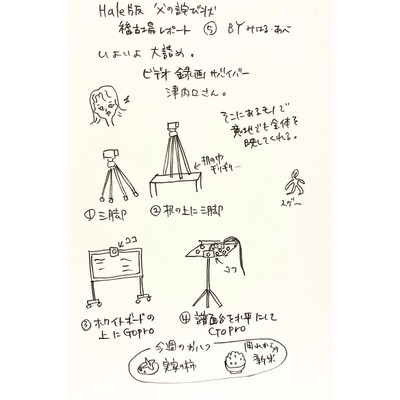 Hale版 父の詫び状
稽古場レポート ⑤ BY みはる・あべ
いよいよ 大詰め。
ビデオ録画サバイバー
津内口さん。
そこにあるモノで
意地でも全体を
映してくれる。
机の巾
ギリギリ…
① 三脚
② 机の上に三脚
スゲー
ココ
ココ
③ ホワイトボードの
上にGopro
④ 譜面台を水平にして
Gopro
今週の
実家の柿
新米